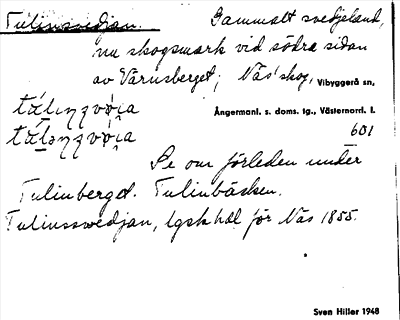 Tulinsvedjan. Gammalt svedjeland,
nu skogsmark vid södra sidan
av Vårdsberget; Näs' skog, Vibyggerå sn,
Ångermanl. s. doms. tg., Västernorrl. l.
601
Se om förleden under
Tulinberget. Tulinbäcken.
Tulinssvedjan, lgsk hdl för Näs 1855.
Sven Hiller 1948